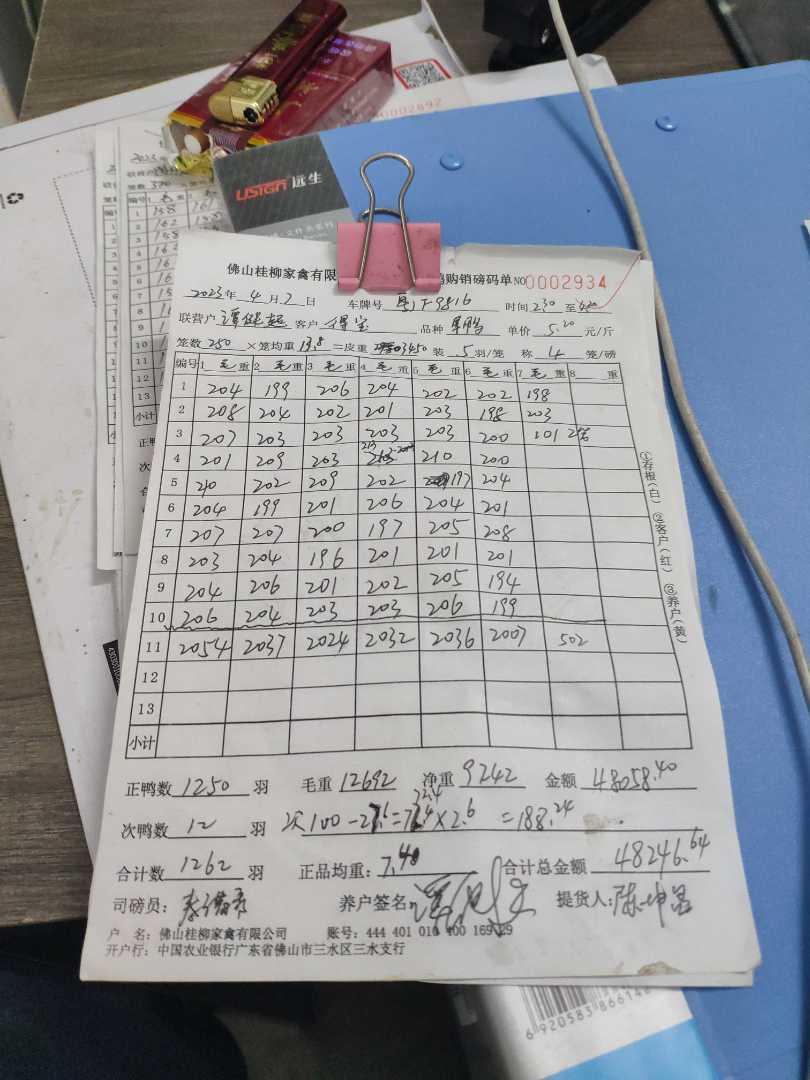 0002892
USIGN 远生
佛山桂柳家禽有限 鸭购销磅码单 NO 0002934
2023年 4月7日 车牌号 时间 230 至
联营户 客户 得宝 品种 单价 5.20 元/斤
笼数 250 ×笼均重 13.8 =皮重 3450 装 5 羽/笼 称 4 笼/磅
编号 1 毛 重 2 毛 重 3 毛 重 4 毛 重 5 毛 重 6 毛 重 7 毛 重 8 重
1 204 199 206 204 202 202 198
2 208 204 202 201 203 198 203
3 207 203 203 203 203 200 101
4 201 209 203 213 210 200
5 210 202 209 202 197 204
6 204 199 201 206 204 201
7 207 207 200 197 205 208
8 203 204 196 201 201 201
9 204 206 201 202 205 194
10 206 204 203 203 206 199
11 2054 2037 2024 2032 2036 2007 502
12
13
小计
①存根(白) ②客户(红) ③养户(黄)
正鸭数 1250 羽 毛重 12692 净重 9242 金额 48058.40
次鸭数 12 羽 次100-27.6=72.4×2.6=188.24
合计数 1262 羽 正品均重: 7.40 合计总金额 48246.64
司磅员: 养户签名: 提货人:
户 名: 佛山桂柳家禽有限公司 账号: 444 401 010 400 169 29
开户行: 中国农业银行广东省佛山市三水区三水支行